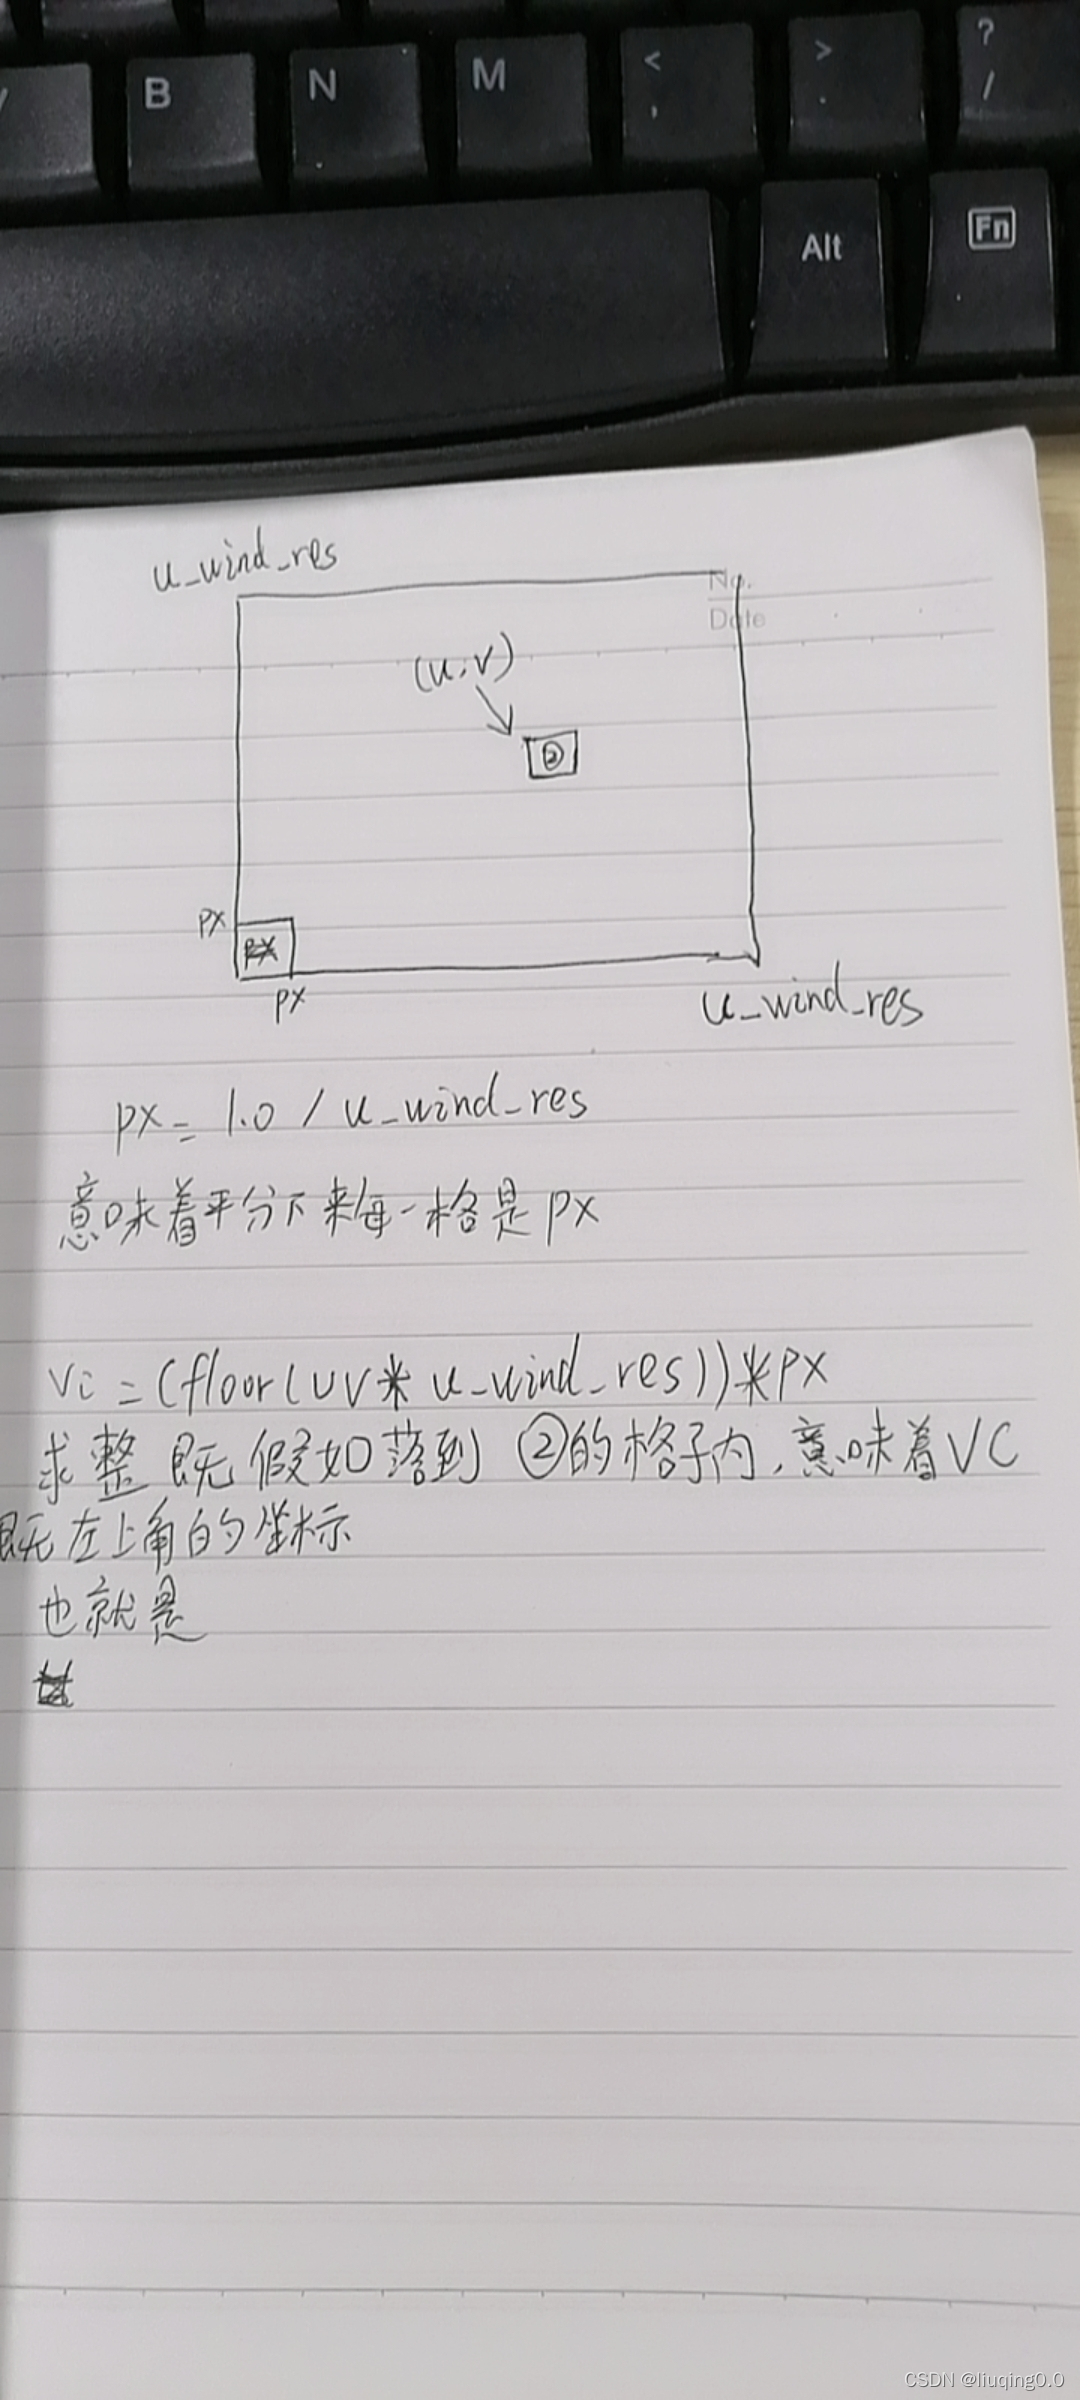 B N M < , > . ? /
Alt Fn
u_wind_res
No.
Date
(u.v)
②
px
px
px
u_wind_res
px = 1.0 / u_wind_res
意味着平分下来每一格是 px
vc = (floor(uv * u_wind_res)) * px
求整 既 假如落到 ②的格子内, 意味着VC
既左上角的坐标
也就是
CSDN @liuqing0.0